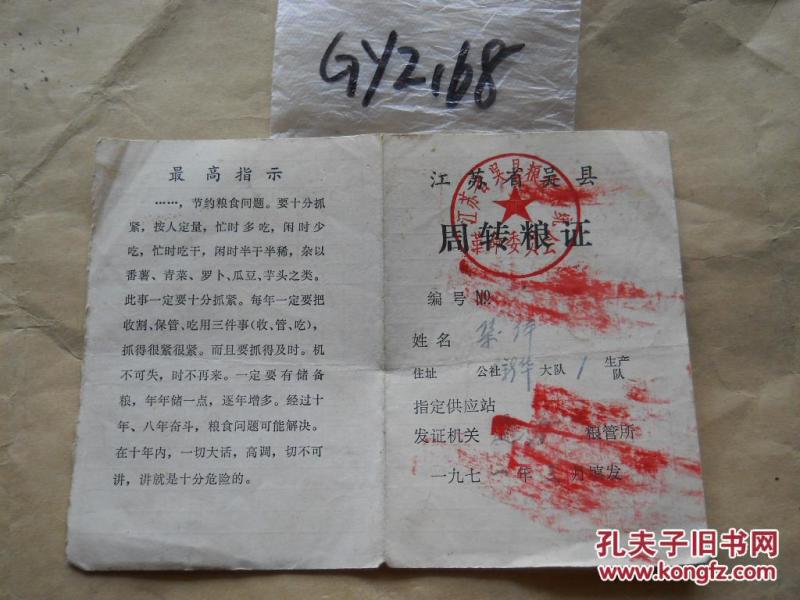 GY2168
最高指示
……，节约粮食问题。要十分抓
紧，按人定量，忙时多吃，闲时少
吃，忙时吃干，闲时半干半稀，杂以
番薯、青菜、罗卜、瓜豆、芋头之类。
此事一定要十分抓紧。每年一定要把
收割、保管、吃用三件事(收、管、吃)，
抓得很紧很紧。而且要抓得及时。机
不可失，时不再来。一定要有储备
粮，年年储一点，逐年增多。经过十
年、八年奋斗，粮食问题可能解决。
在十年内，一切大话，高调，切不可
讲，讲就是十分危险的。
江苏省吴县
周转粮证
江苏省吴县粮
革命委员会
编号 №
姓名
住址 公社 新华 大队 1 生产队
指定供应站
发证机关 粮管所
一九七一年 月填发
孔夫子旧书网
www.kongfz.com